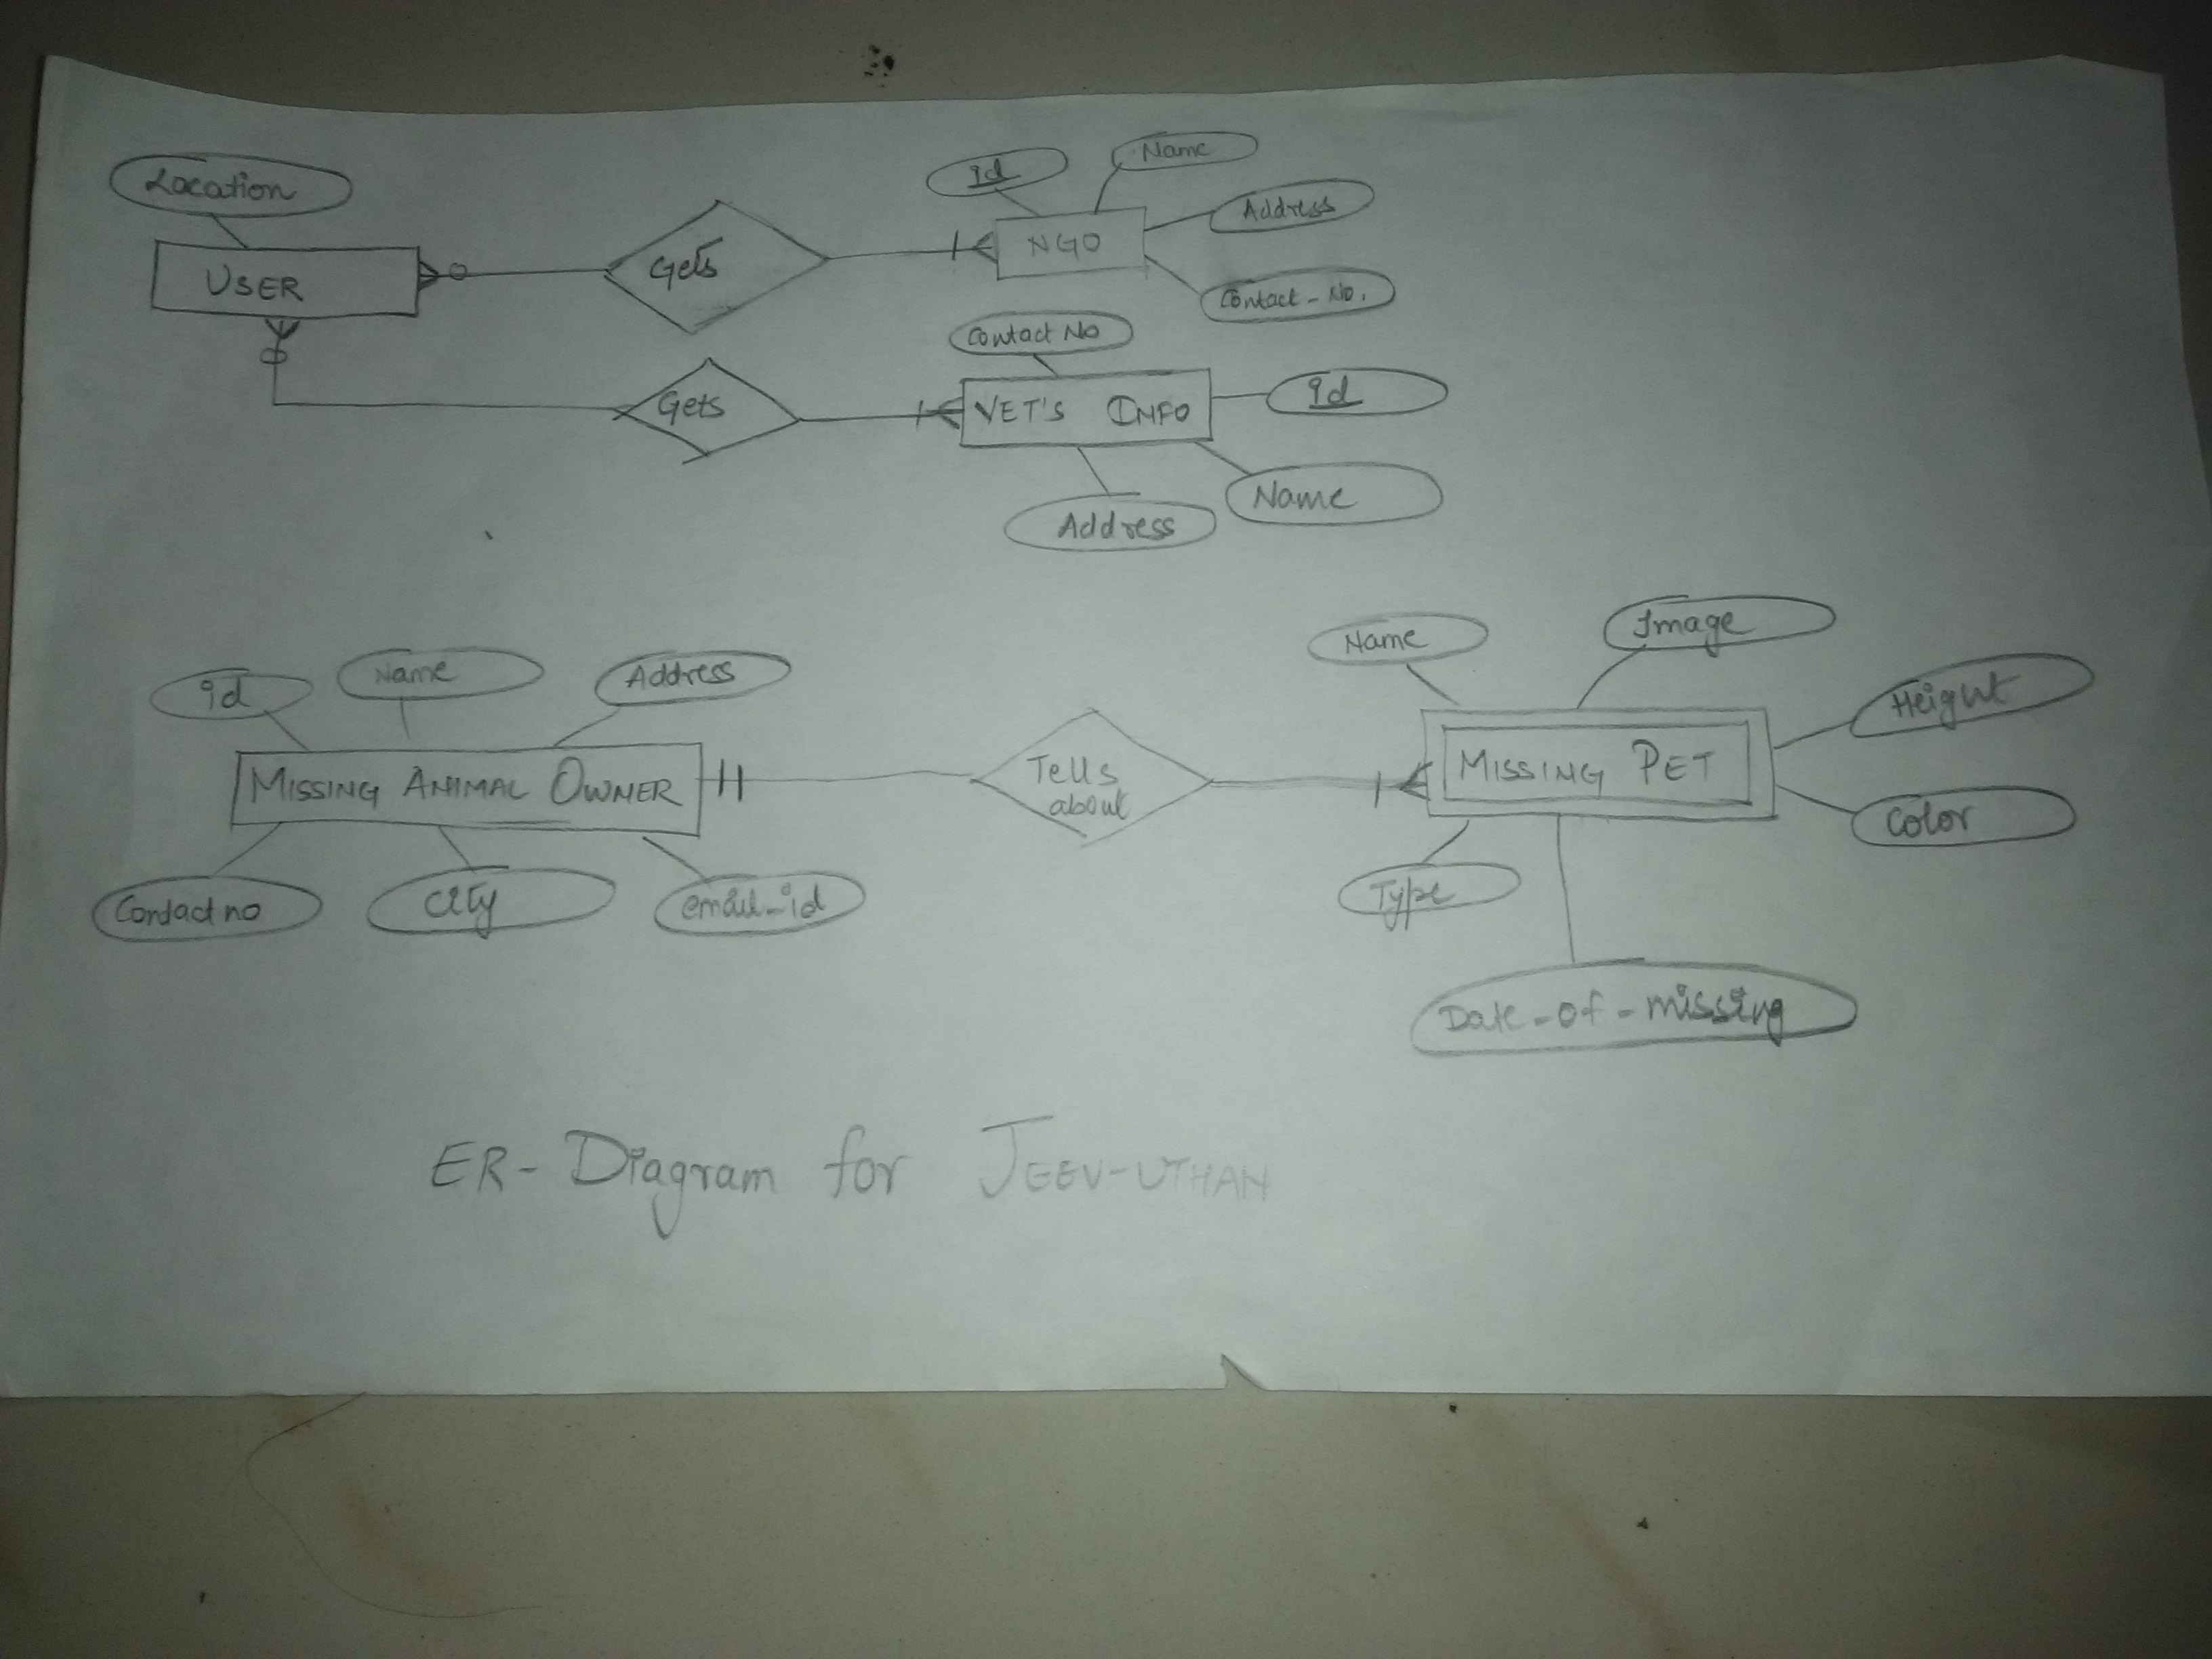 Location
USER
Gets
id
Name
Address
NGO
Contact_No.
Gets
Contact No
VET'S INFO
id
Name
Address
id
Name
Address
MISSING ANIMAL OWNER
Contact no
City
email_id
Tells
about
Name
Image
Height
MISSING PET
Color
Type
Date-of-missing
ER-Diagram for JEEV-UTHAN